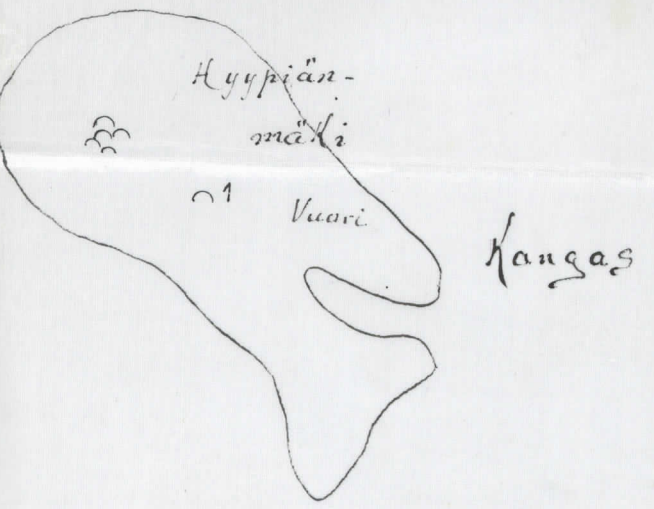 Hyypiän-
mäki
1
Vuori
Kangas